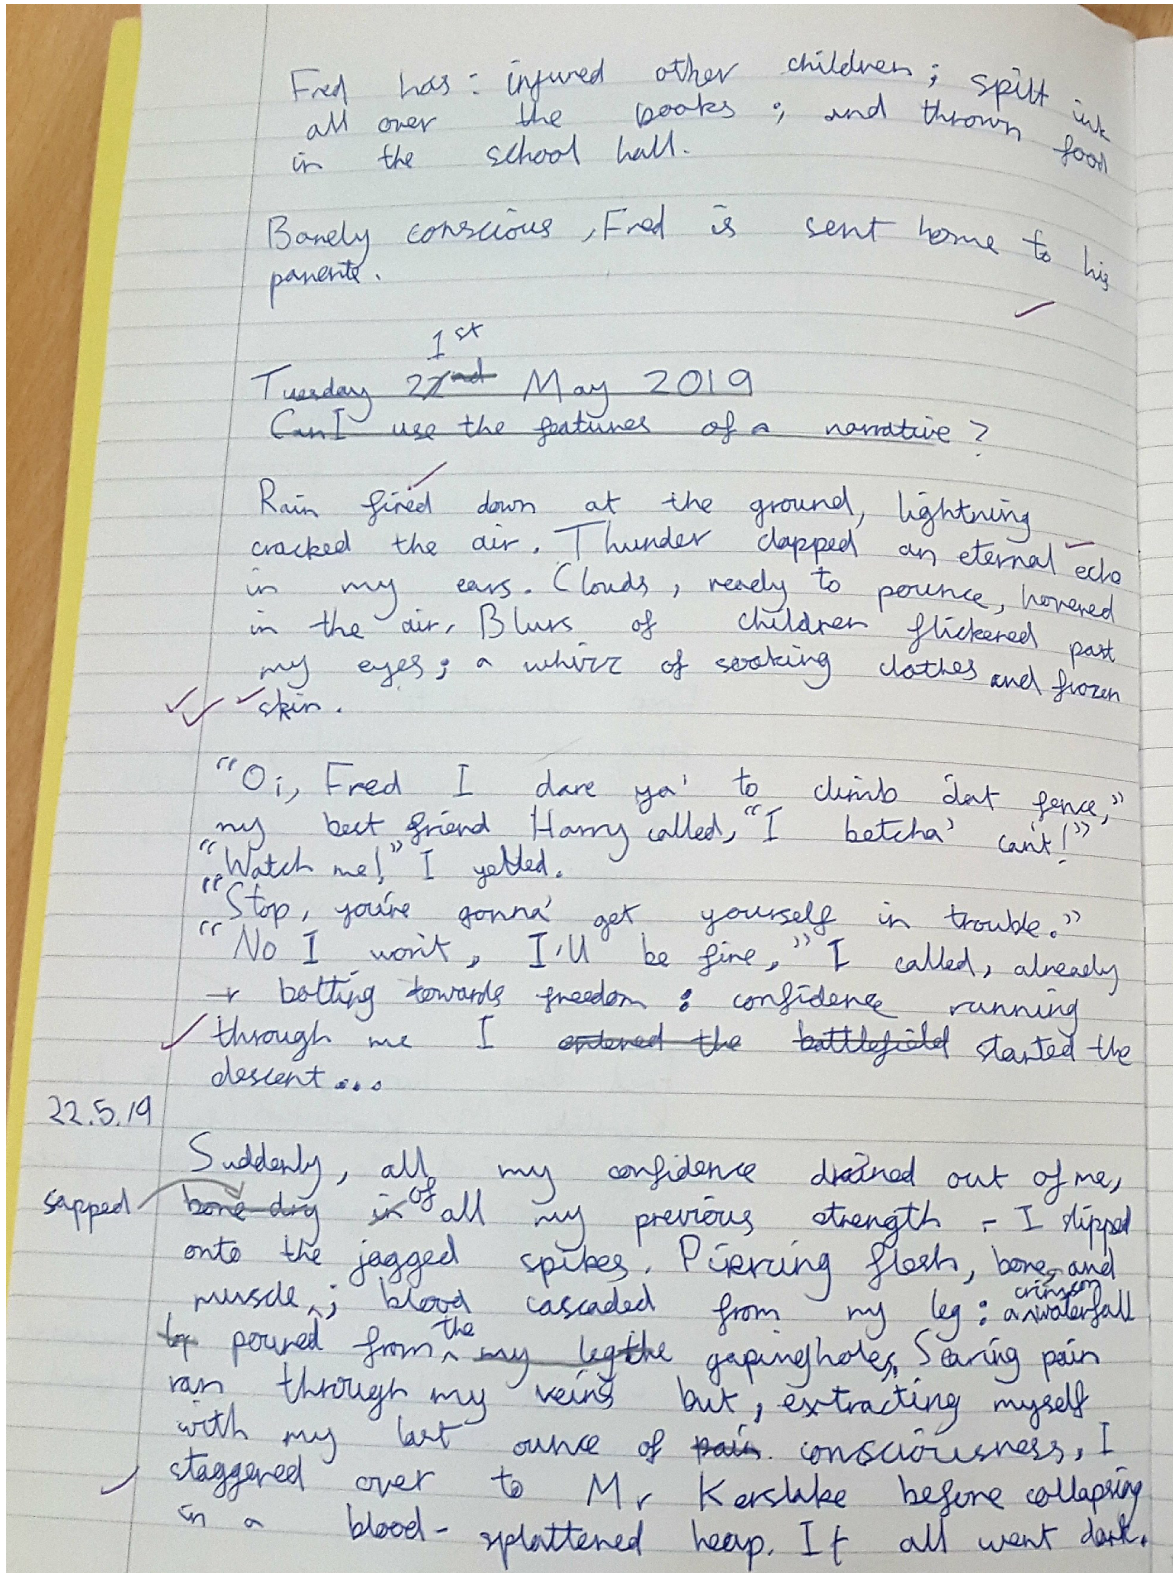 Fred has : injured other children ; spilt ink
all over the books ; and thrown food
in the school hall.
Barely conscious , Fred is sent home to his
parents.
1st
Tuesday 22nd May 2019
Can I use the features of a narrative ?
Rain fired down at the ground, lightning
cracked the air. Thunder clapped an eternal echo
in my ears. Clouds , ready to pounce, hovered
in the air. Blurs of children flickered past
my eyes ; a whirr of soaking clothes and frozen
skin.
"Oi, Fred I dare ya' to climb dat fence,"
my best friend Harry called, "I betcha' can't!"
"Watch me!" I yelled.
"Stop, you're gonna' get yourself in trouble."
"No I won't, I'll be fine," I called, already
bolting towards freedom : confidence running
through me I entered the battlefield started the
descent...
22.5.19
Suddenly, all my confidence drained out of me,
sapped bone dry in of all my previous strength - I slipped
onto the jagged spikes. Piercing flesh, bone, and
muscle, ; blood cascaded from my leg : a crimson waterfall
poured from the my leg the gaping holes. Searing pain
ran through my veins but, extracting myself
with my last ounce of pain consciousness, I
staggered over to Mr Kerslake before collapsing
in a blood-splattered heap. It all went dark.